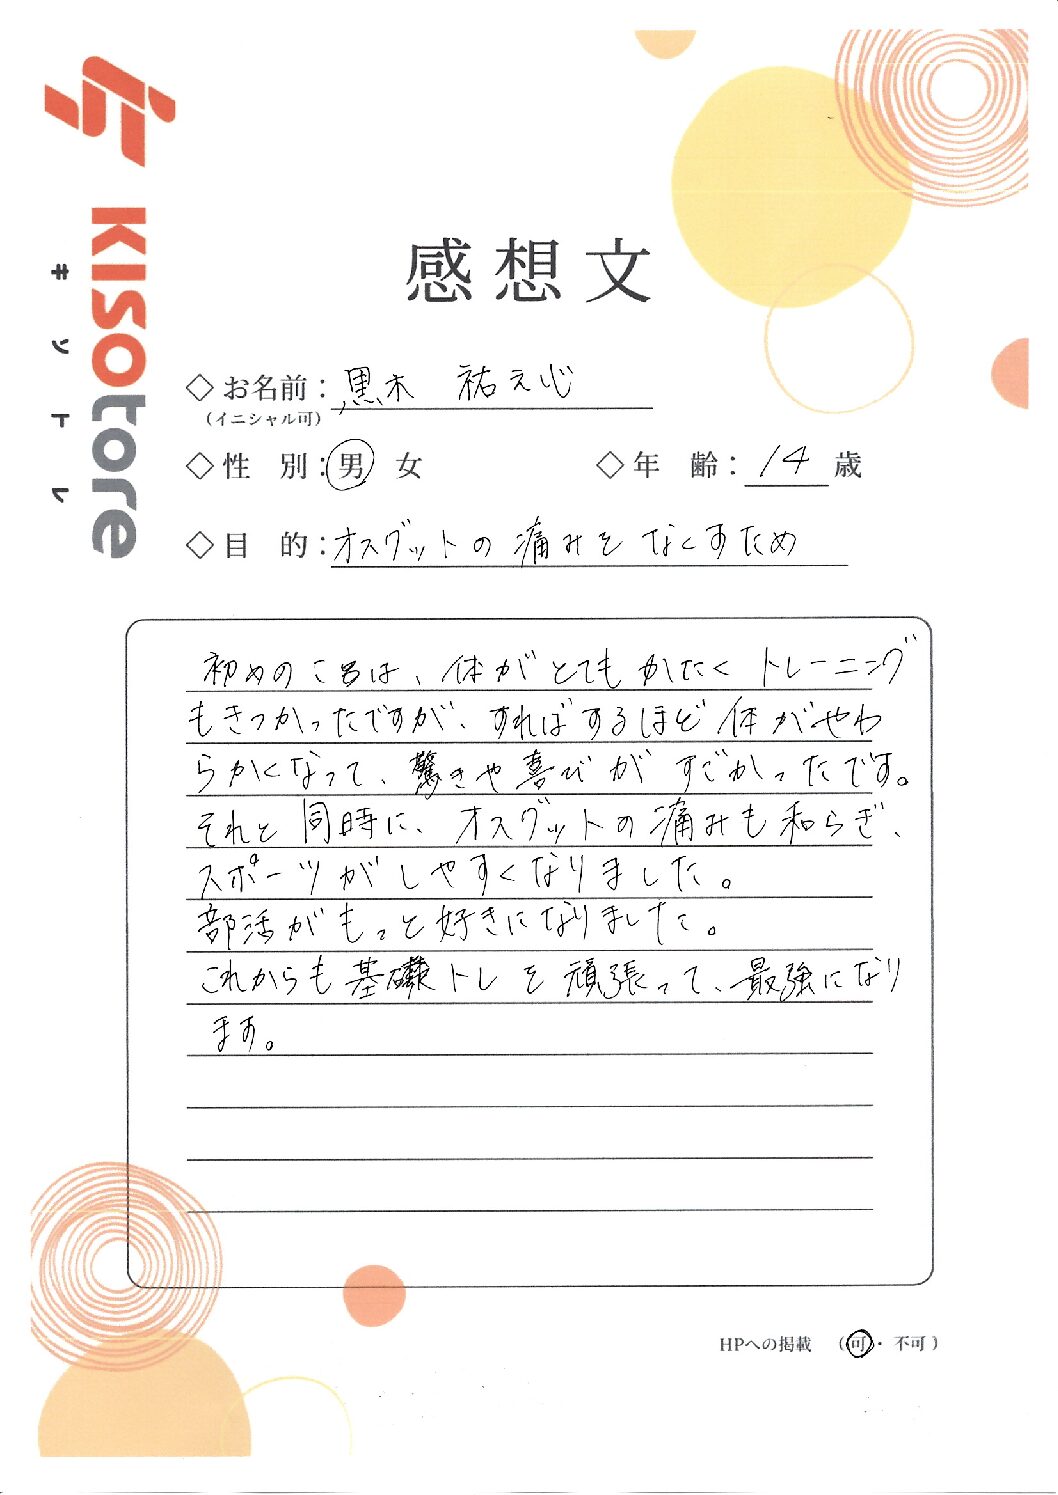 KISOtore
キソトレ
感想文
◇お名前：黒木 祐え心
（イニシャル可）
◇性 別：男 女 ◇年 齢：14歳
◇目 的：オスグットの痛みをなくすため
初めのころは、体がとてもかたくトレーニング
もきつかったですが、すればするほど体がやわ
らかくなって、驚きや喜びがすごかったです。
それと同時に、オスグットの痛みも和らぎ、
スポーツがしやすくなりました。
部活がもっと好きになりました。
これからも基礎トレを頑張って、最強になり
ます。
HPへの掲載 （可・不可）